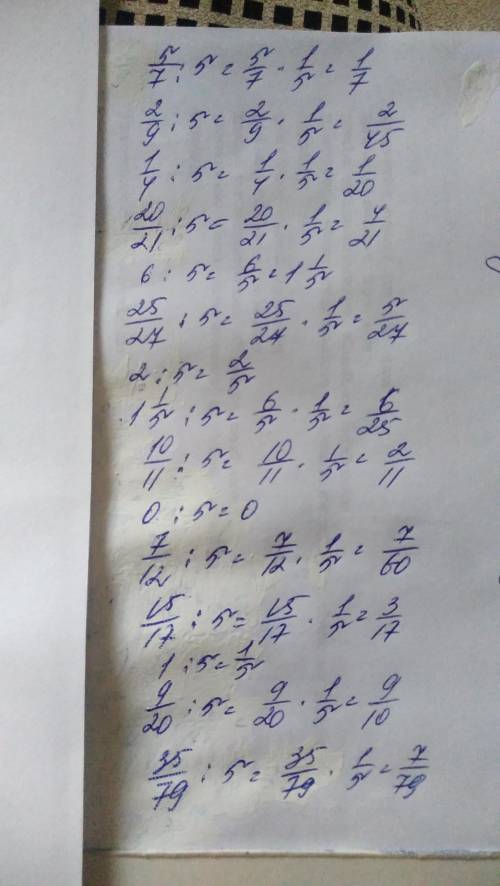 5/7 : 5 = 5/7 · 1/5 = 1/7
2/9 : 5 = 2/9 · 1/5 = 2/45
1/4 : 5 = 1/4 · 1/5 = 1/20
20/21 : 5 = 20/21 · 1/5 = 4/21
6 : 5 = 6/5 = 1 1/5
25/27 : 5 = 25/27 · 1/5 = 5/27
2 : 5 = 2/5
1 1/5 : 5 = 6/5 · 1/5 = 6/25
10/11 : 5 = 10/11 · 1/5 = 2/11
0 : 5 = 0
7/12 : 5 = 7/12 · 1/5 = 7/60
15/17 : 5 = 15/17 · 1/5 = 3/17
1 : 5 = 1/5
9/20 : 5 = 9/20 · 1/5 = 9/10
35/79 : 5 = 35/79 · 1/5 = 7/79